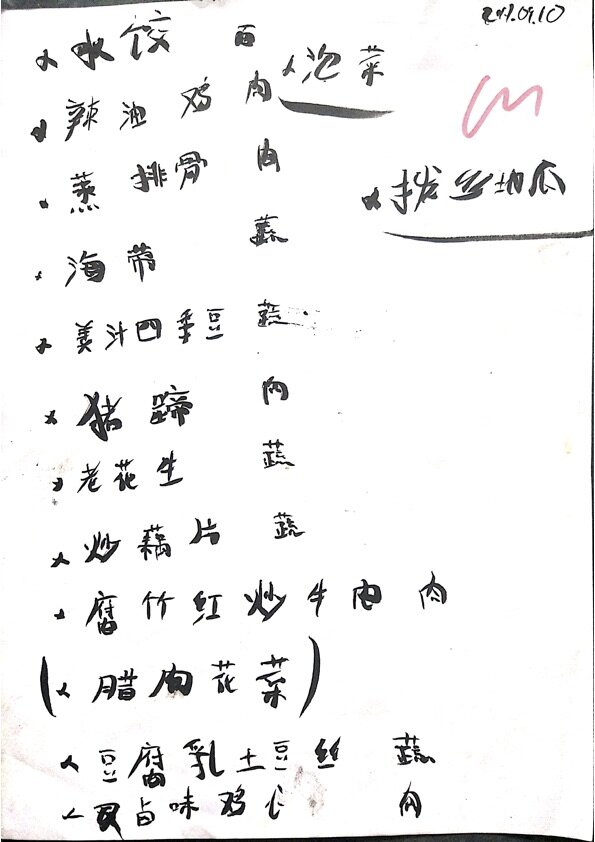 水饺 百
泡菜
辣油鸡 肉
蒸排骨 肉
拔丝地瓜
海带 蔬
姜汁四季豆 蔬
猪蹄 肉
老花生 蔬
炒藕片 蔬
腐竹红炒牛肉 肉
(腊肉花菜)
豆腐乳土豆丝 蔬
卤味鸡 肉